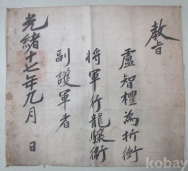 敎旨
盧智為折衝
將軍行龍驤衛
副護軍者
光緖十七年九月 日
kobay